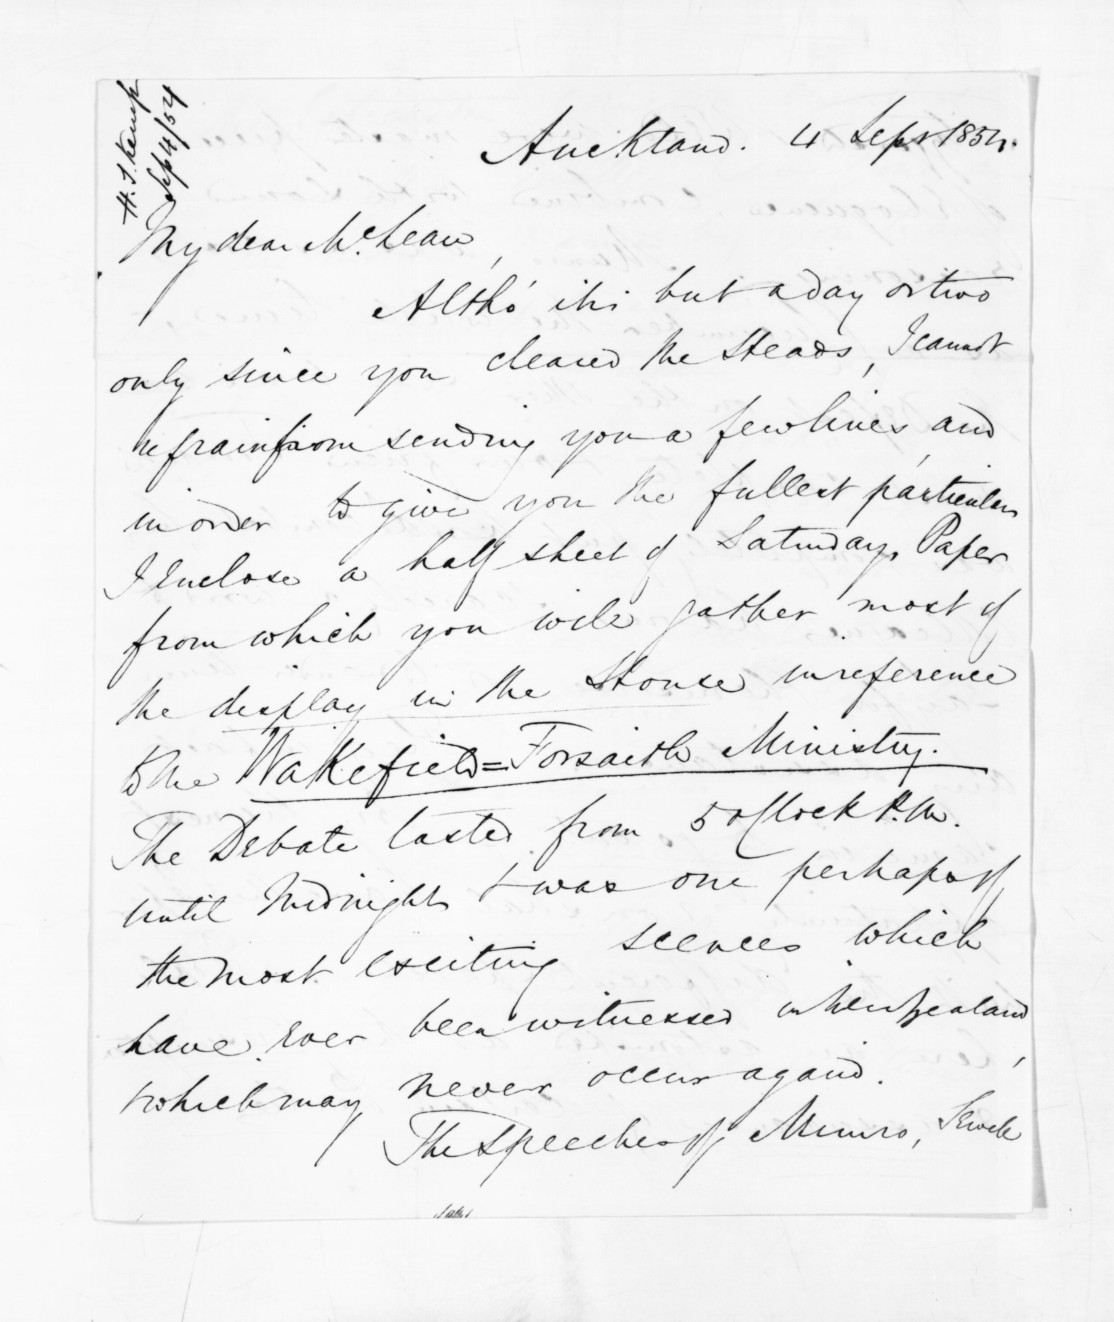 H. T. Kemp
Sep 4/54
Auckland. 4 Sepr 1854.
My dear McLean,
Altho' it is but a day or two
only since you cleared the Heads, I cannot
refrain from sending you a few lines, and
in order to give you the fullest particulars
I Enclose a half sheet of Saturdays Paper
from which you will gather most of
the display in the House in reference
to the Wakefield=Forsaith Ministry.
The Debate lasted from 5 o'Clock P.M.
until Midnight & was one perhaps of
the most exciting scenes which
have ever been witnessed in New Zealand,
& which may never occur again.
The Speeches of Munro, Sewell